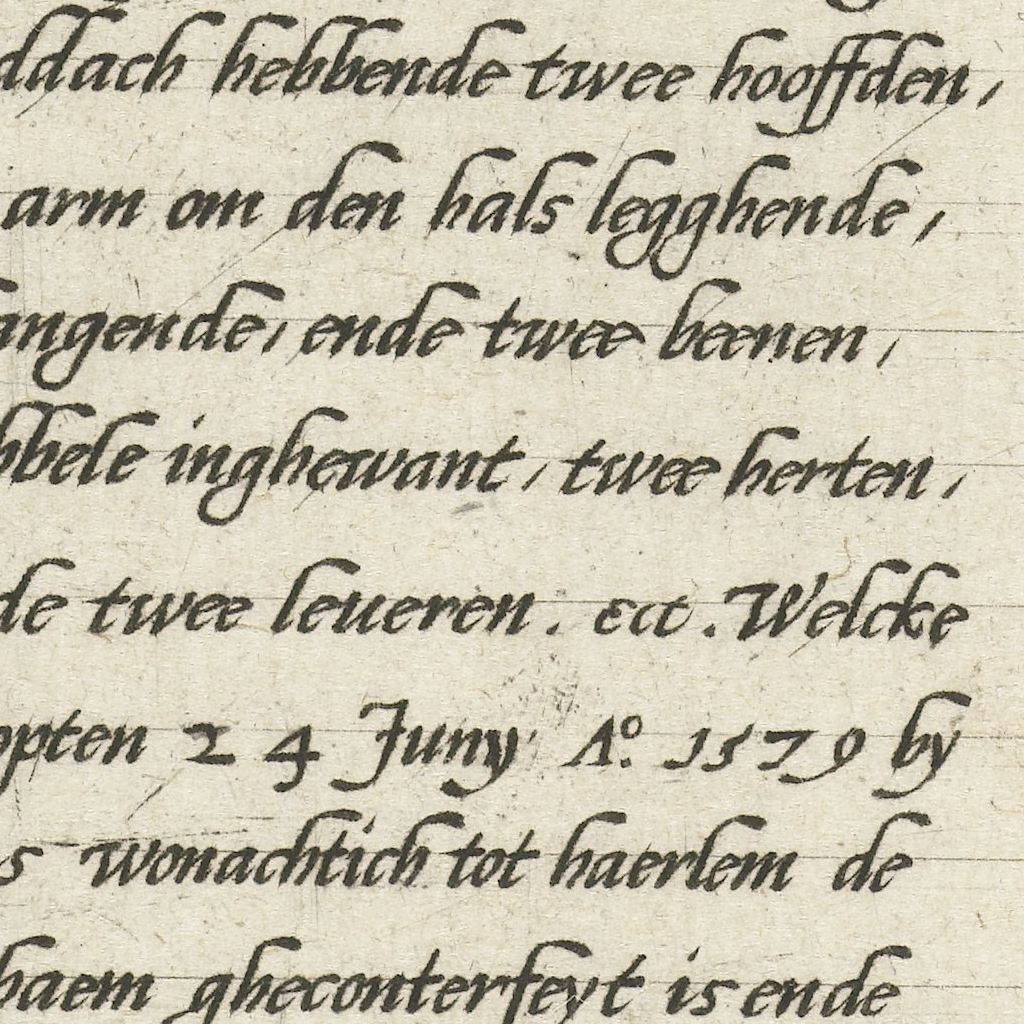 ddach hebbende twee hooffden,
arm om den hals legghende,
angende, ende twee beenen,
bbele inghewant, twee herten,
de twee leueren. ect. Welcke
opten 24 Juny A°. 1579 by
s wonachtich tot haerlem de
haem gheconterfeyt is ende